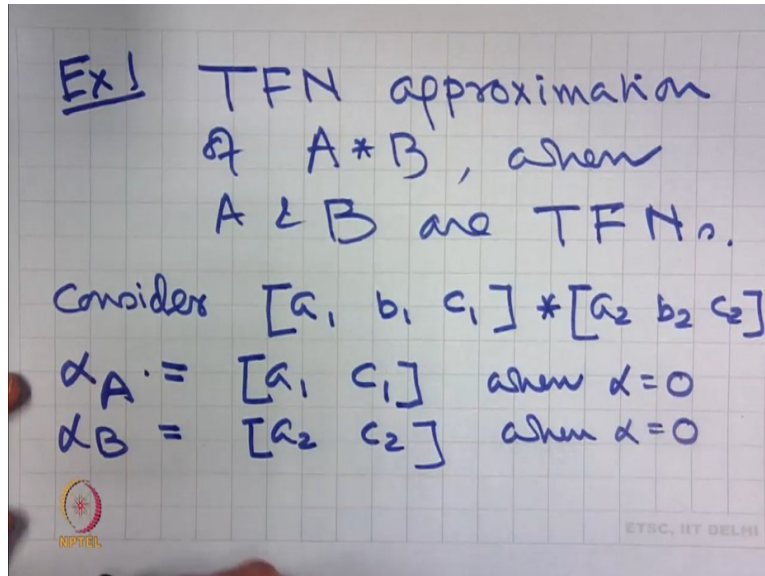 Ex1 TFN approximation
of A * B, when
A & B are TFNs.
Consider [a₁ b₁ c₁] * [a₂ b₂ c₂]
αA = [a₁ c₁] when α=0
αB = [a₂ c₂] when α=0
NPTEL
ETSC, IIT DELHI